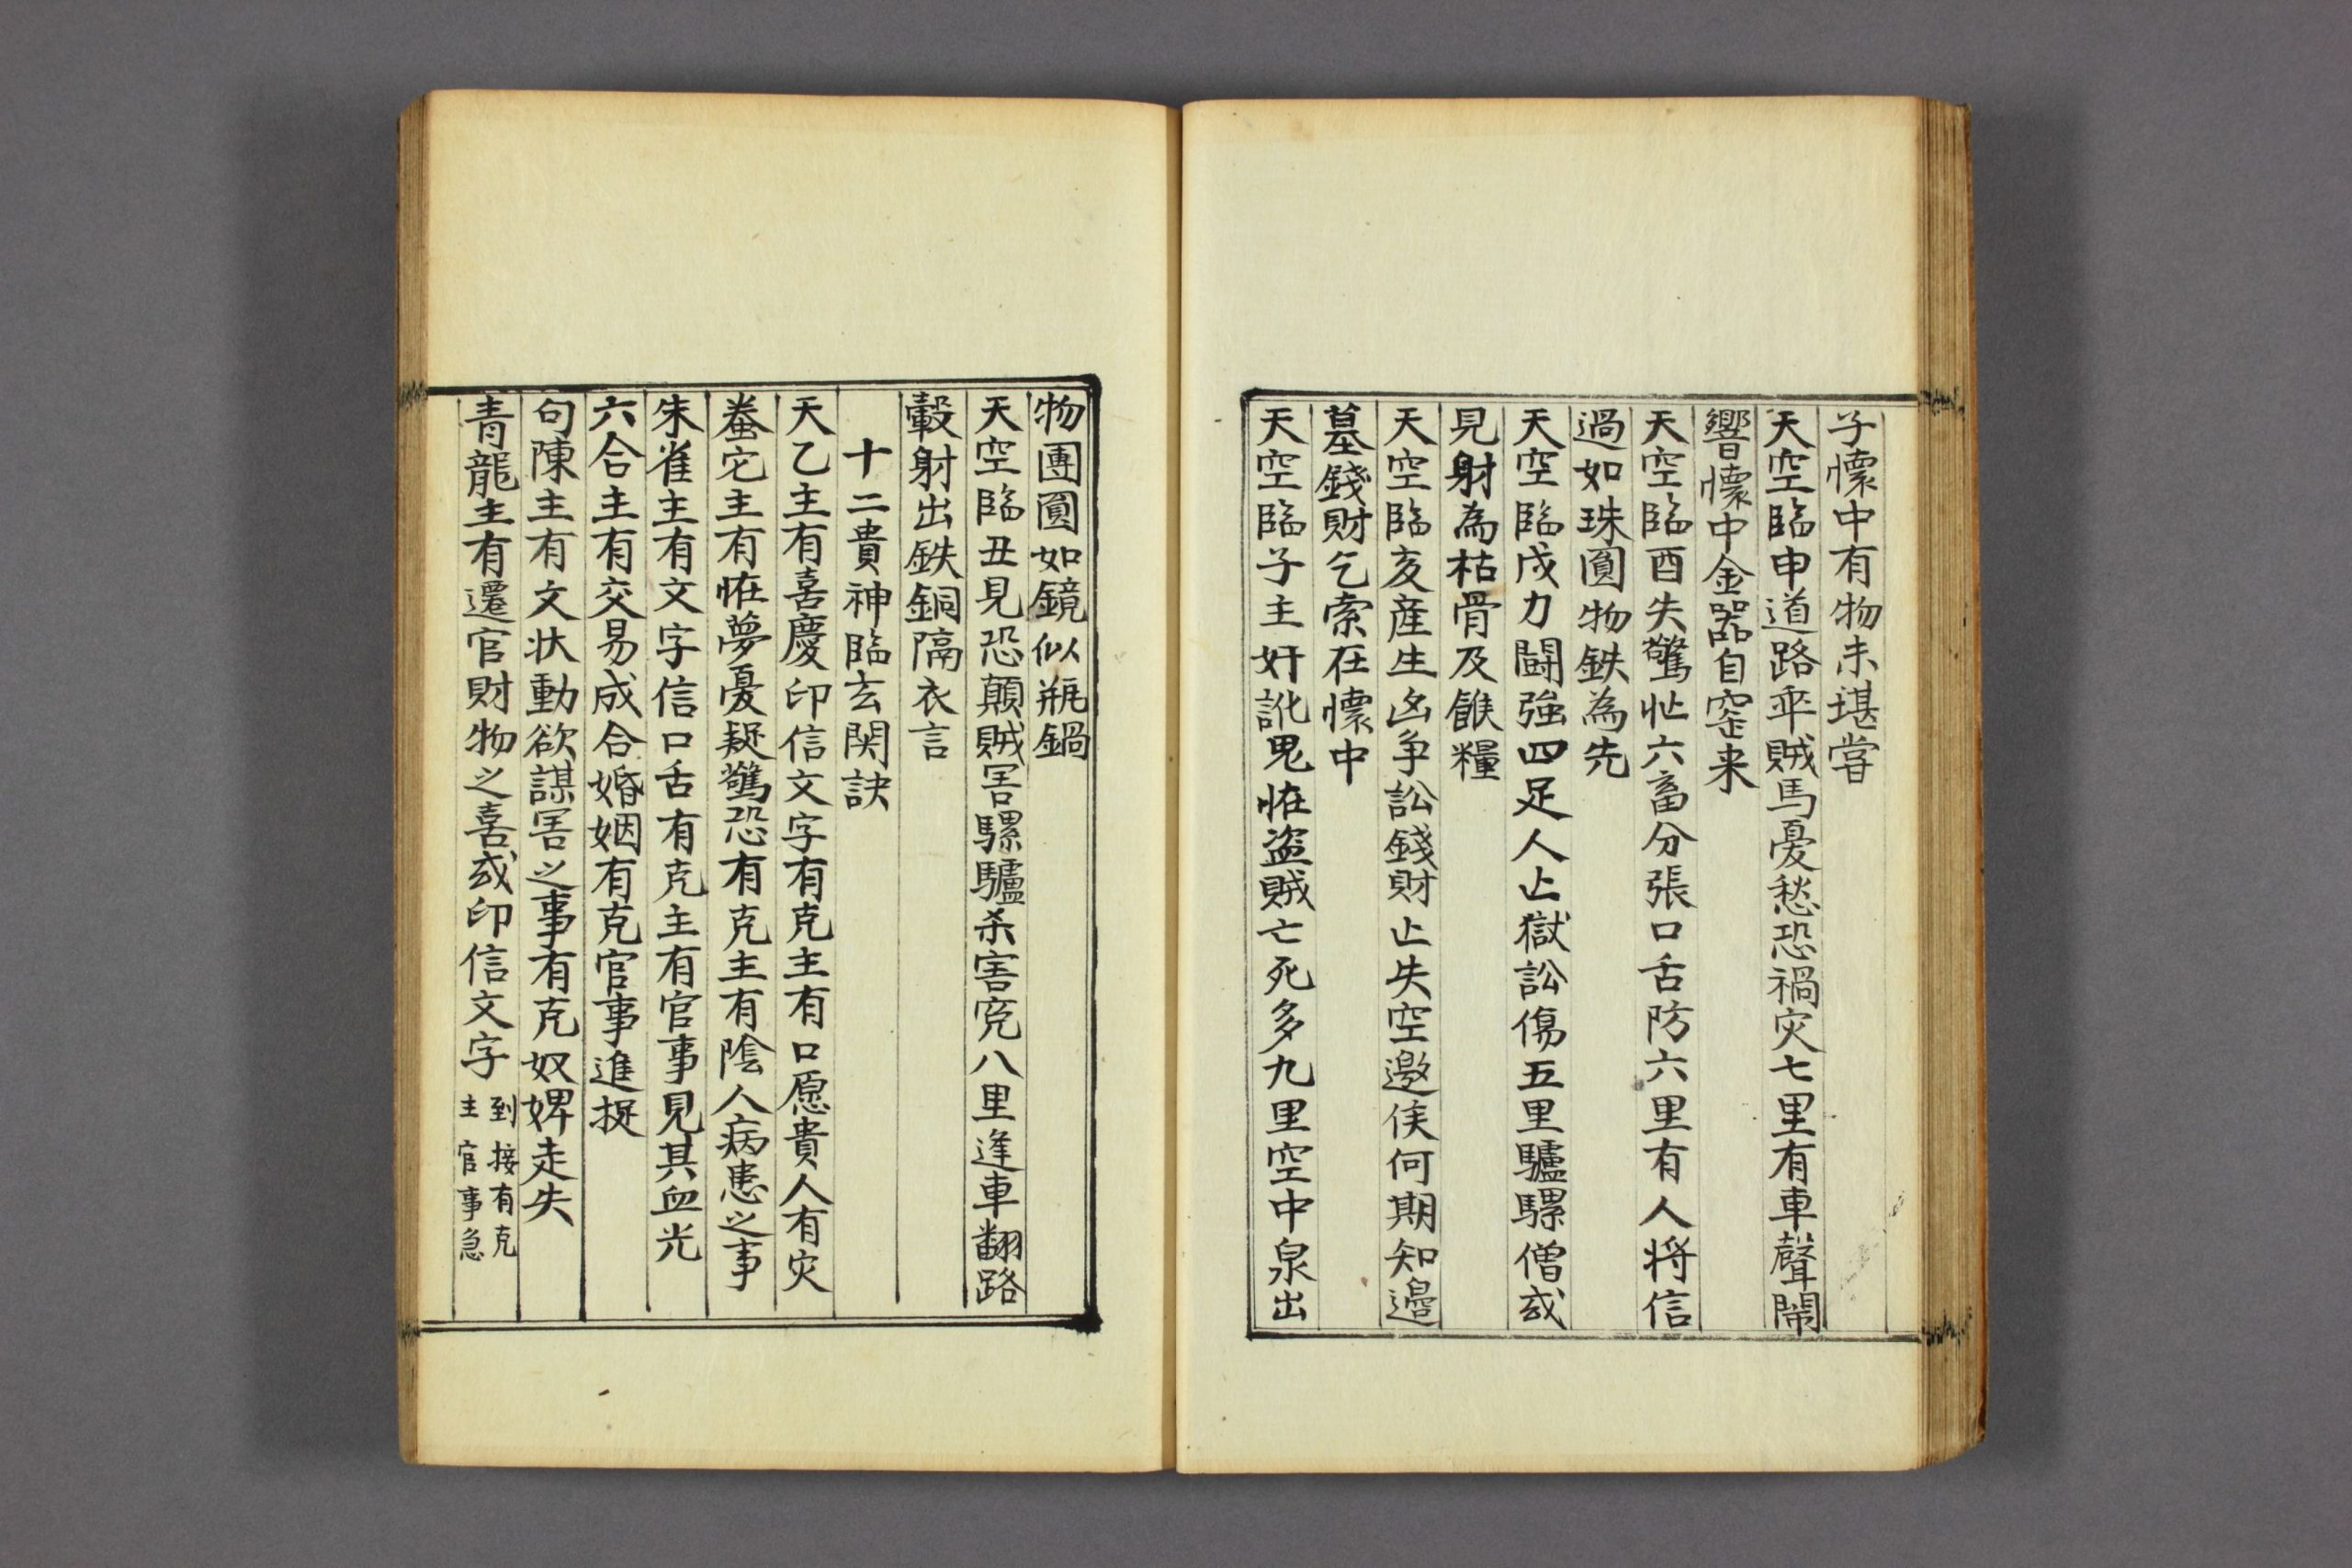 子懷中有物未堪嘗
天空臨申道路乖賊馬憂愁恐禍灾七里有車聲鬧
響懷中金器自窑来
天空臨酉失驚恠六畜分張口舌防六里有人将信
過如珠圓物鉄為先
天空臨戌力鬪強四足人亡獄訟傷五里驢騾僧或
見射為枯骨及餱糧
天空臨亥産生凶争訟錢財亡失空邀俟何期知邉
墓錢財乞索在懷中
天空臨子主奸訛鬼恠盗賊亡死多九里空中泉出
物團圓如鏡似瓶鍋
天空臨丑見恐顛賊害騾驢杀害寃八里逢車翻路
轂射出鉄銅隔衣言
十二貴神臨玄関訣
天乙主有喜慶印信文字有克主有口愿貴人有灾
螣它主有恠夢憂疑驚恐有克主有隂人病患之事
朱雀主有文字信口舌有克主有官事見其血光
六合主有交易成合婚姻有克官事進捉
句陳主有文状動欲謀害之事有克奴婢走失
青龍主有遷官財物之喜或印信文字到接有克主官事急